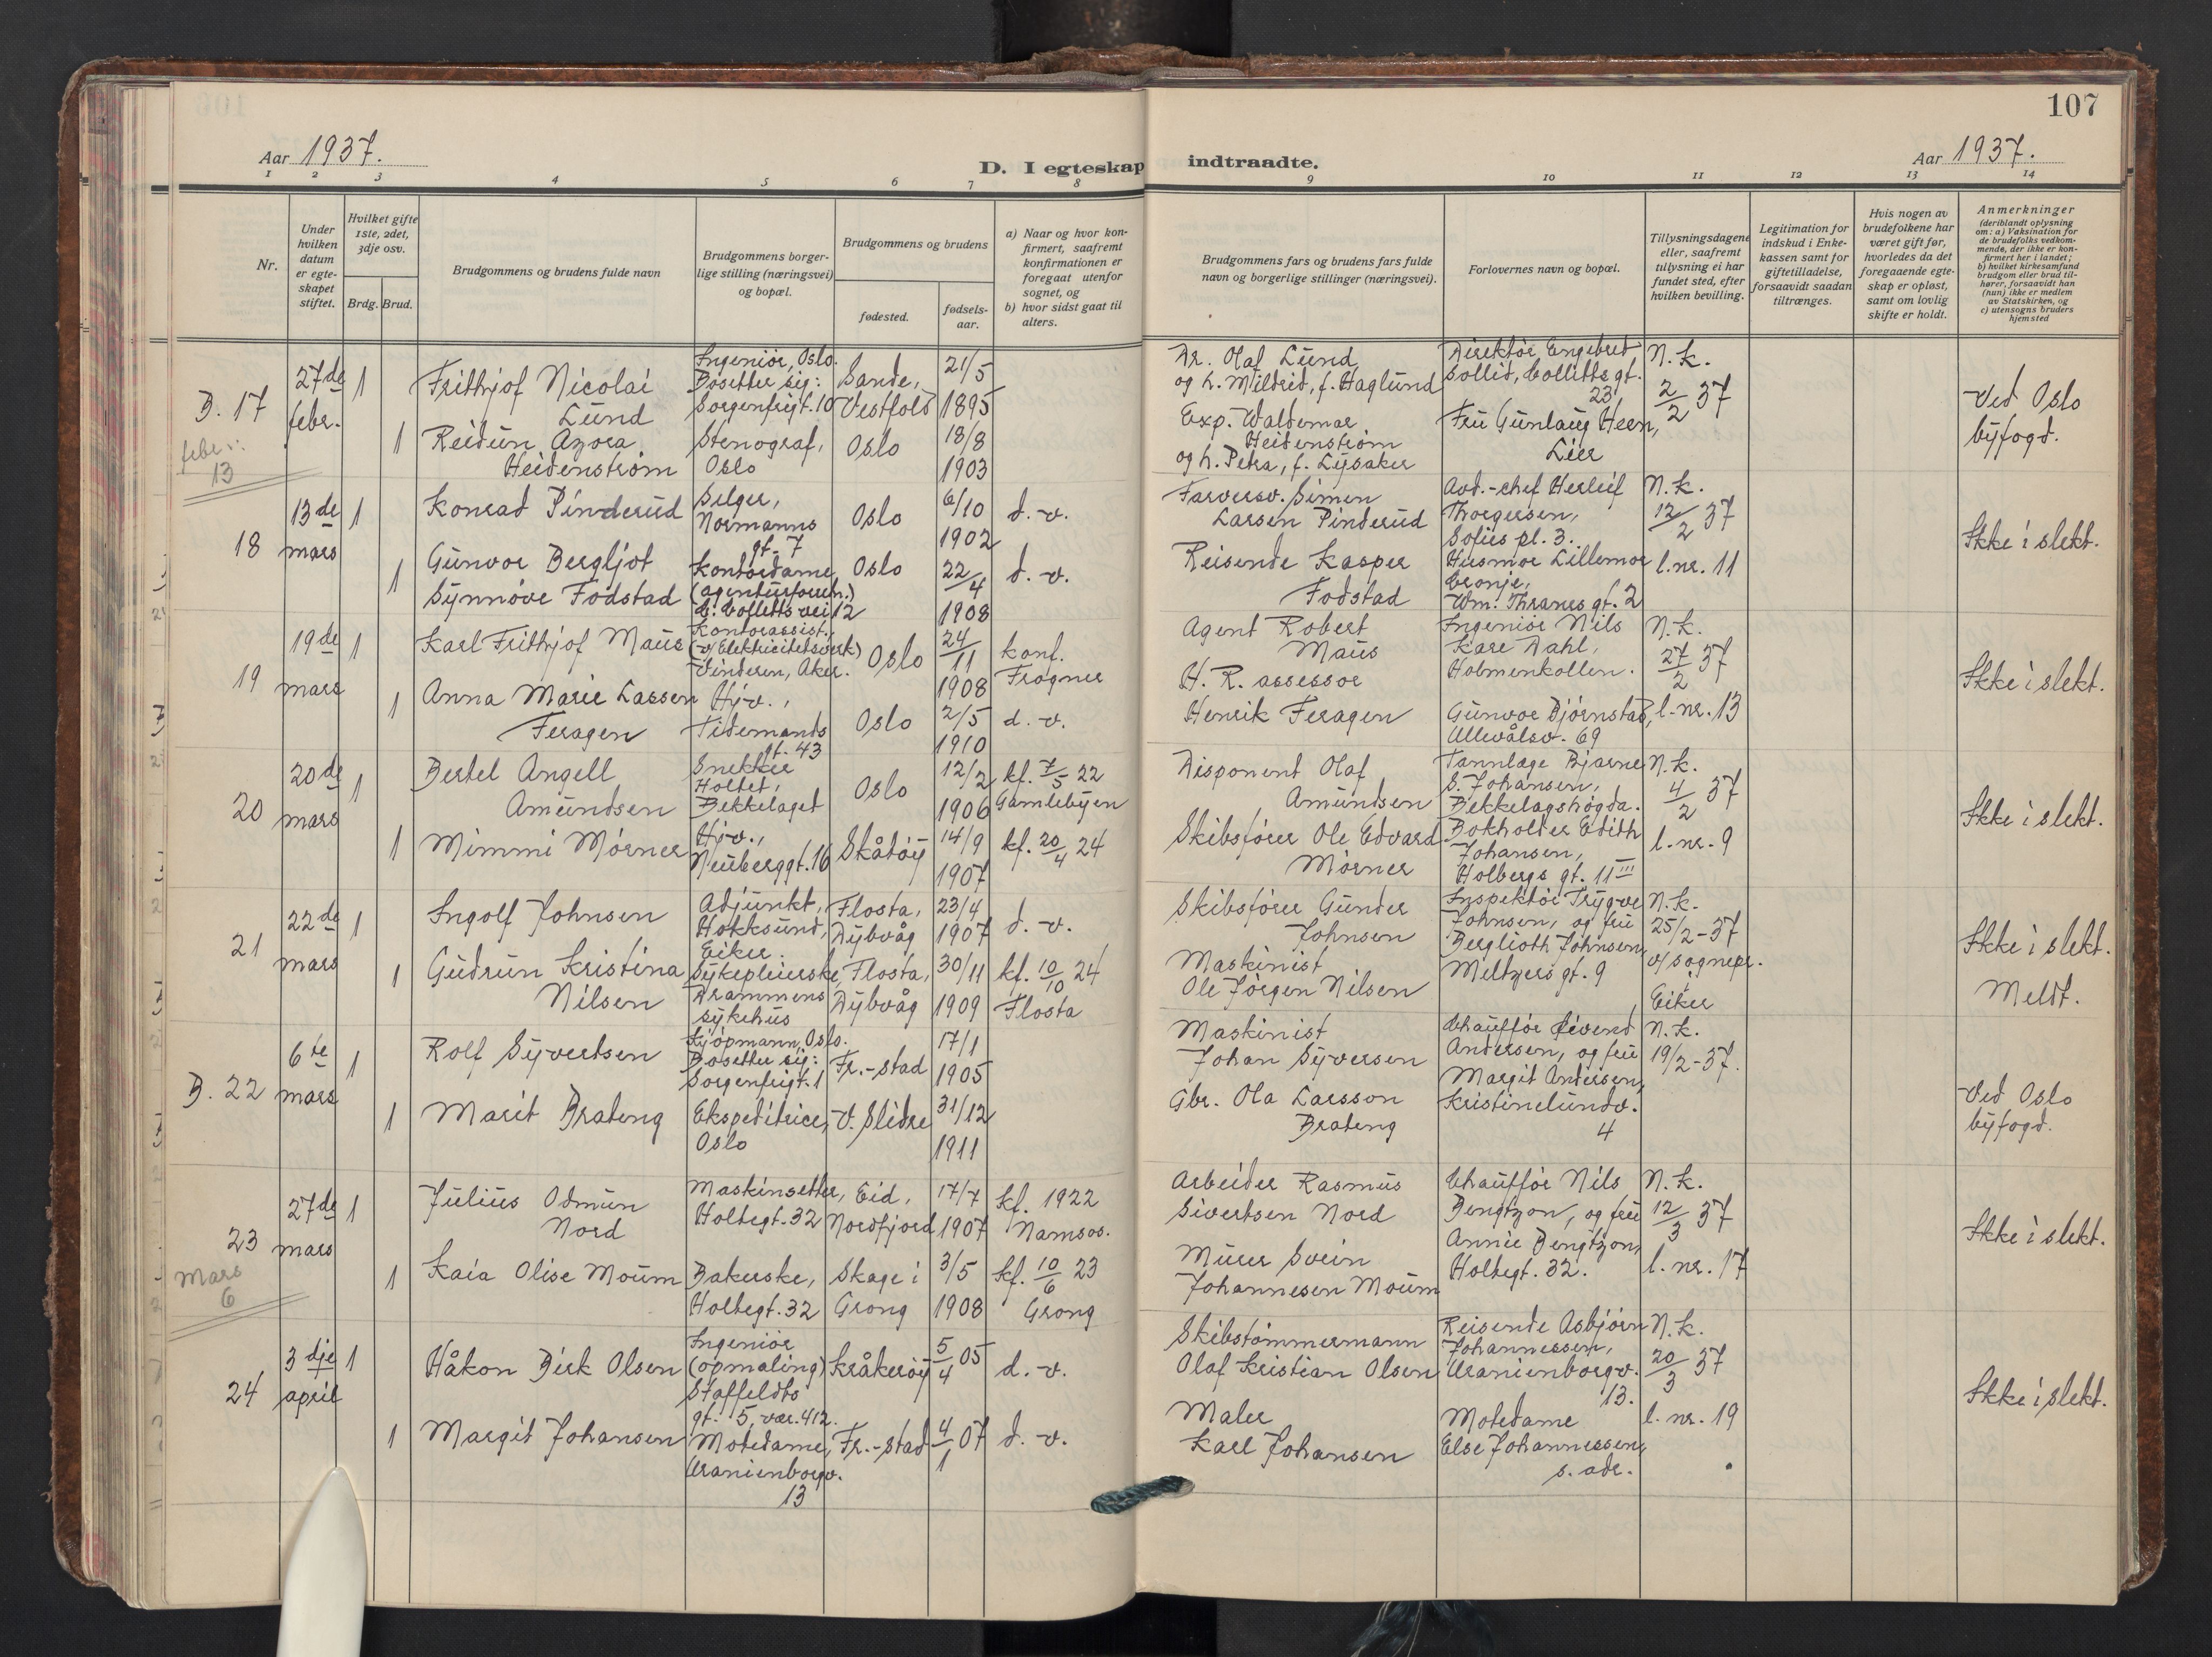 107
Aar 1937.
D. I egteskap indtraadte.
Aar 1937.
1 2 3 4 5 6 7 8 9 10 11 12 13 14
Nr.
Under hvilken datum er egte-skapet stiftet.
Hvilket gifte 1ste, 2det, 3dje osv.
Brdg. Brud.
Brudgommens og brudens fulde navn
Brudgommens borger-lige stilling (næringsvei) og bopæl.
Brudgommens og brudens
fødested.
fødsels-aar.
a) Naar og hvor kon-firmert, saafremt konfirmationen er foregaat utenfor sognet, og
b) hvor sidst gaat til alters.
Brudgommens fars og brudens fars fulde navn og borgerlige stillinger (næringsvei).
Forlovernes navn og bopæl.
Tillysningsdagene eller, saafremt tillysning ei har fundet sted, efter hvilken bevilling.
Legitimation for indskud i Enke-kassen samt for giftetilladelse, forsaavidt saadan tiltrænges.
Hvis nogen av brudefolkene har været gift før, hvorledes da det foregaaende egte-skap er opløst, samt om lovlig skifte er holdt.
Anmerkninger
(deriblandt oplysning om: a) Vaksination for de brudefolks vedkom-mende, der ikke er kon-firmert her i landet;
b) hvilket kirkesamfund brudgom eller brud til-hører, forsaavidt han (hun) ikke er medlem av Statskirken, og
c) utensogns bruders hjemsted
B. 17
27de febr.
1
Frithjof Nicolai Lund
Ingeniør, Oslo.
Bosetter sig:
Sorgenfrigt. 10
Sande, Vestfold
21/5 1895
Dr. Olaf Lund
og h. Mildrid, f. Haglund
Direktør Engebret
Sollid, Collettsgt. 23
N.k.
2/2 37
Ved Oslo byfogd.
1
Reidun Azora Heidenstrøm
Stenograf, Oslo
Oslo
18/8 1903
Exp. Waldemar Heidenstrøm
og h. Petra, f. Lysaker
Fru Gunlaug Heen, Lier
febr.: 13
18
13de mars
1
Konrad Pinderud
Selger,
Normanns gt. 7
Oslo
6/10 1902
d.-v.
Farversv. Simen
Larsen Pinderud
Avd.-chef Herleif
Thorgersen,
Sofies pl. 3.
N.k.
12/2 37
Ikke i slekt.
1
Gunvor Bergljot
Synnøve Fodstad
Kontordame
(agenturforretn.)
C. Colletts vei 12
Oslo
22/4 1908
d.-v.
Reisende Kasper Fodstad
Husmor Lillemor
Cronje,
Wm. Thranes gt. 2
l.nr. 11
19
19de mars
1
Karl Frithjof Maus
Kontorassist.,
(v/Elektricitetsverk)
Vinderen, Aker.
Oslo
24/11 1908
konf. Frogner
Agent Robert Maus
Ingeniør Nils
Kåre Dahl,
Holmenkollen.
N.k.
27/2 37
Ikke i slekt.
1
Anna Marie Lassen Feragen
Hjv.,
Tidemands gt. 43
Oslo
2/5 1910
d.-v.
H. R. assessor
Henrik Feragen
Gunvor Bjørnstad,
Ullevålsv. 69
l.-nr. 13
20
20de mars
1
Bertel Angell Amundsen
Snekker
Holtet,
Bekkelaget
Oslo
12/2 1906
kf. 7/5 22
Gamlebyen
Disponent Olaf Amundsen
Tannlæge Bjarne
S. Johansen,
Bekkelagshøgda.
N.k.
4/2 37
Ikke i slekt.
1
Mimmi Mørner
Hjv.,
Neuberggt. 16
Skåtøy
14/9 1907
kf. 20/4 24
Skibsfører Ole Edvard Mørner
Bokholder Edith
Johansen,
Holbergs gt. 11 III
l.-nr. 9
21
22de mars
1
Ingolf Johnsen
Adjunkt,
Hokksund,
Eiker.
Flosta, Dybvåg
23/4 1907
d.-v.
Skibsfører Gunder Johnsen
Inspektør Trygve
Johnsen, og fru
Berglioth Johnsen,
Meltzers gt. 9
N.k.
25/2-37
v/sognepr. i Eiker
Ikke i slekt.
Meldt.
1
Gudrun Kristina Nilsen
Sykepleierske,
Drammens sykehus
Flosta, Dybvåg
30/11 1909
kf. 10/10 24
Flosta
Maskinist
Ole Jørgen Nilsen
B. 22
6te mars
1
Rolf Syvertsen
Kjøpmann, Oslo.
Bosetter sig:
Sorgenfrigt. 1
Fr.-stad
17/1 1905
Maskinist
Johan Syversen
Chauffør Eivend
Andersen, og fru
Margit Andersen,
Kristinelundv. 4
N.k.
19/2-37.
Ved Oslo byfogd.
1
Marit Brateng
Ekspeditrice, Oslo
V. Slidre
31/12 1911
Gbr. Ola Larsson Brateng
23
27de mars
1
Julius Odmun Nord
Maskinsetter,
Holtegt. 32
Eid, Nordfjord
17/7 1907
kf. 1922 Namsos.
Arbeider Rasmus
Sivertsen Nord
Chauffør Nils
Bengtzon, og fru
Annie Bengtzon,
Holtegt. 32.
N.k.
12/3 37
l.-nr. 17
Ikke i slekt.
1
Kaia Olise Moum
Bakerske,
Holtegt. 32
Skage i Grong
3/5 1908
kf. 10/6 23
Grong
Murer Svein
Johannesen Moum
Mars 6
24
3dje april
1
Håkon Dirk Olsen
Ingeniør
(opmaling)
Staffeldts
gt. 5, vær. 412.
Kråkerøy
5/4 05
d.-v.
Skibstømmermann
Olaf Kristian Olsen
Reisende Asbjørn
Johannessen,
Uranienborgv. 13.
N.k.
20/3 37
Ikke i slekt.
1
Margit Johansen
Motedame,
Uranienborgv. 13
Fr.-stad
4/1 07
d.-v.
Maler
Karl Johansen
Motedame
Else Johannessen,
s. adr.
l. nr. 19